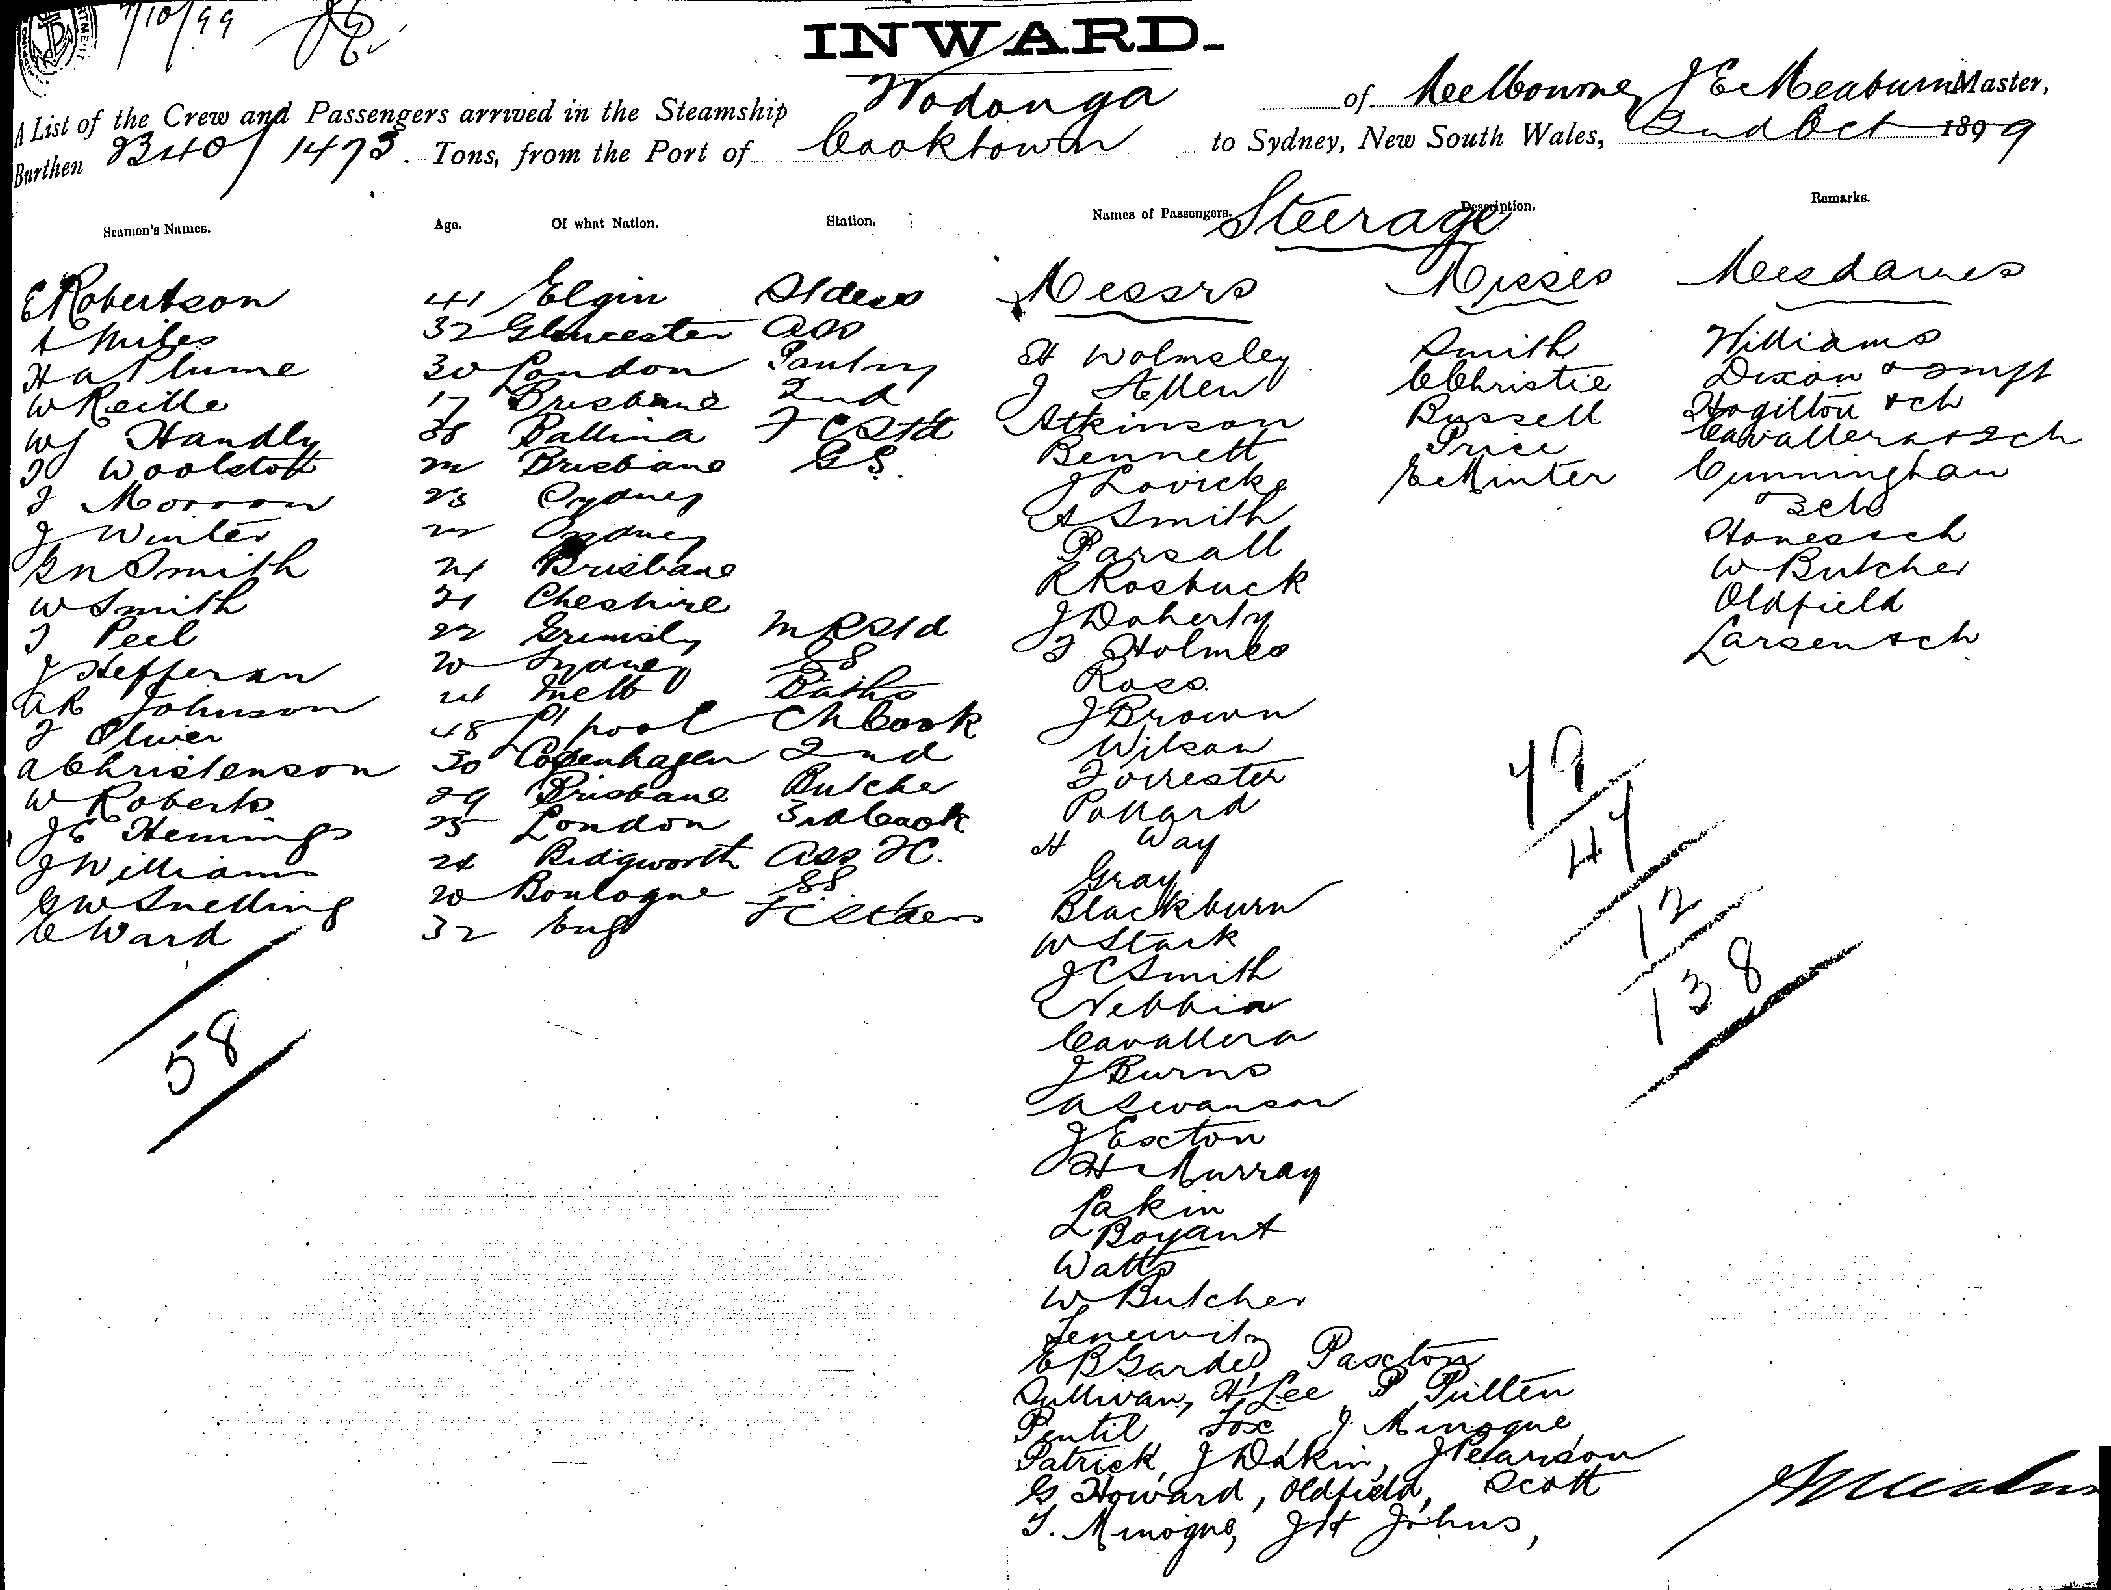 7/10/99
INWARD.
A List of the Crew and Passengers arrived in the Steamship Wodonga of Melbourne, J E Meaburn Master,
Burthen 2340/1473 Tons, from the Port of Cooktown to Sydney, New South Wales, 2nd Oct 1899
Seamen's Names. Age. Of what Nation. Station. Names of Passengers. Steerage Description. Remarks.
E Robertson 41 Elgin Stdess
A Miles 32 Gloucester Ass
H A Plume 30 London Pantry
W Reille 17 Brisbane 2nd
W J Handly 38 Ballina F C Std
F Woolstot 22 Brisbane G S.
F Morrow 23 Sydney
J Winter 22 Sydney
G N Smith 24 Brisbane
W Smith 21 Cheshire
F Peel 22 Grimsly M R Std
J Hefferan 20 Sydney SS
A R Johnson 24 Melb Baths
F Oliver 48 L'pool Ch Cook
A Christenson 30 Copenhagen 2nd
W Roberts 29 Brisbane Butcher
J E Hemings 25 London 3rd Cook
J Williams 24 Ridgworth Ass FC.
G W Snelling 20 Boulogne SS
C Ward 32 Eng
58
Messrs
H Wolmsley
J Allen
Atkinson
Bennett
J Lovicke
A Smith
Parsall
R Rosbuck
J Doherty
F Holmes
Ross
J Brown
Wilson
Forrester
Pollard
H Way
Gray
Blackburn
W Stark
J C Smith
Nebbia
Cavallera
J Burns
A Swanson
J Exton
H Murray
Lakin
L Boyant
Watts
W Butcher
E B Garde, Paxton
Sullivan, H Lee P Pullen
Pentil Fox J Minogue
Patrick, J Dakin, J Pearson
G Howard, Oldfield, Scott
T. Minogue, J H Johns,
Misses
Smith
C Christie
Russell
Price
E Minter
Mesdames
Williams
Dixon & Inft
Hogilton & ch
Cavallera & 2 ch
Cunningham
& 3 ch
Hones & ch
W Butcher
Oldfield
Larsen & ch
79
47
12
138